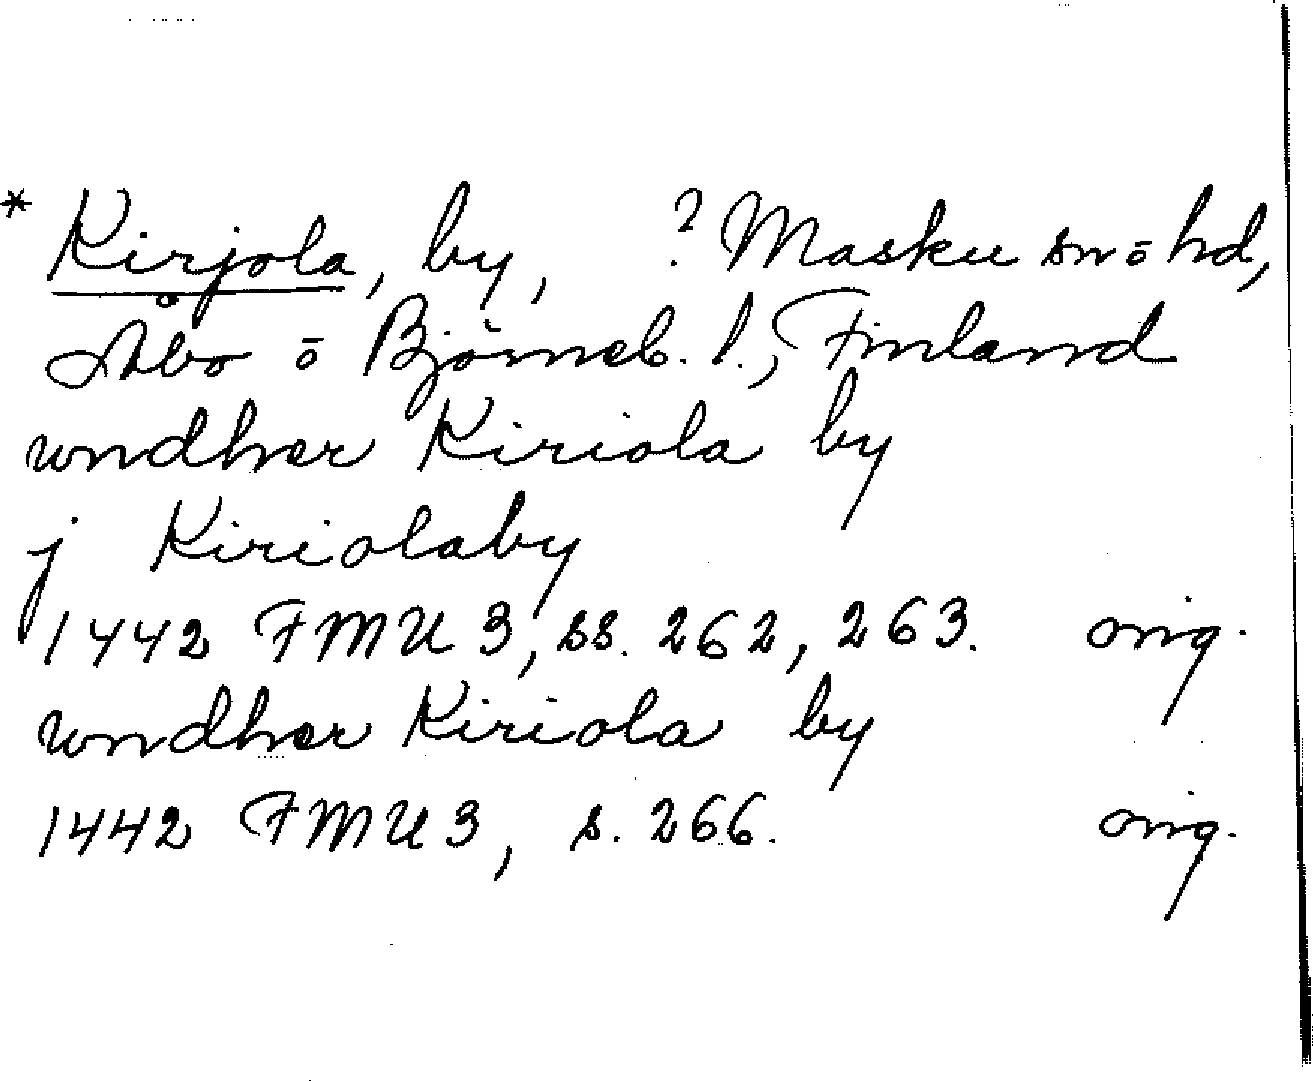 * Kirjola, by, ? Masku sn ō hd,
Åbo ō Björneb. l., Finland
wndher Kiriola by
j Kiriolaby
1442 FMU 3, ss. 262, 263. orig.
wndher Kiriola by
1442 FMU 3, s. 266. orig.